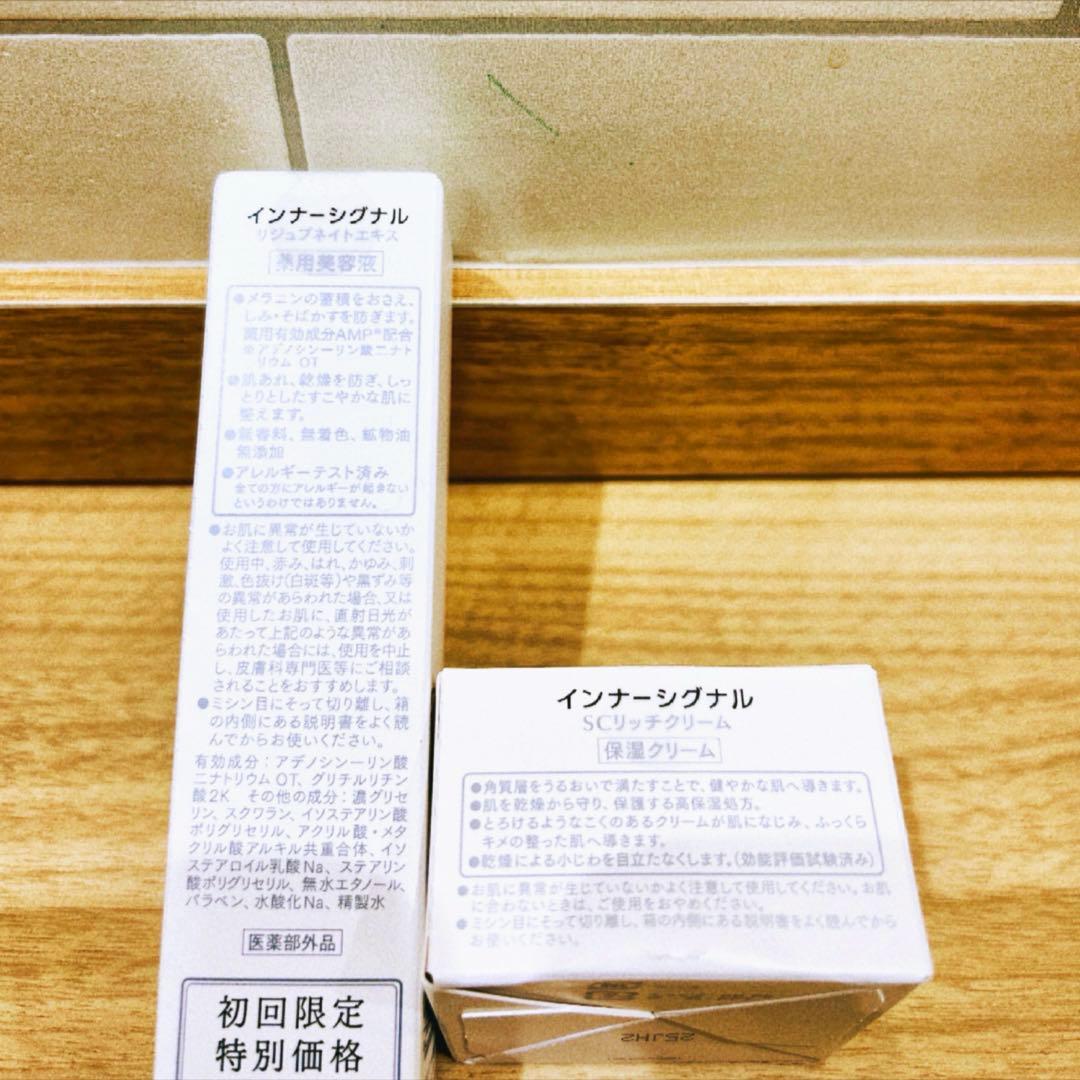 インナーシグナル
リジュブネイトエキス
薬用美容液
●メラニンの蓄積をおさえ、
しみ・そばかすを防ぎます。
薬用有効成分AMP※配合
※アデノシン一リン酸二ナト
リウム OT
●肌あれ、乾燥を防ぎ、しっ
とりとしたすこやかな肌に
整えます。
●無香料、無着色、鉱物油
無添加
●アレルギーテスト済み
全ての方にアレルギーが起きない
というわけではありません。
●お肌に異常が生じていないか
よく注意して使用してください。
使用中、赤み、はれ、かゆみ、刺
激、色抜け(白斑等)や黒ずみ等
の異常があらわれた場合、又は
使用したお肌に、直射日光が
あたって上記のような異常があ
らわれた場合には、使用を中止
し、皮膚科専門医等にご相談
されることをおすすめします。
●ミシン目にそって切り離し、箱
の内側にある説明書をよく読
んでからお使いください。
有効成分：アデノシン一リン酸
二ナトリウムOT、グリチルリチン
酸2K その他の成分：濃グリセ
リン、スクワラン、イソステアリン酸
ポリグリセリル、アクリル酸・メタ
クリル酸アルキル共重合体、イソ
ステアロイル乳酸Na、ステアリン
酸ポリグリセリル、無水エタノール、
パラベン、水酸化Na、精製水
医薬部外品
初回限定
特別価格
インナーシグナル
SCリッチクリーム
保湿クリーム
●角質層をうるおいで満たすことで、健やかな肌へ導きます。
●肌を乾燥から守り、保護する高保湿処方。
●とろけるようなこくのあるクリームが肌になじみ、ふっくら
キメの整った肌へ導きます。
●乾燥による小じわを目立たなくします。(効能評価試験済み)
●お肌に異常が生じていないかよく注意して使用してください。お肌
に合わないときは、ご使用をおやめください。
●ミシン目にそって切り離し、箱の内側にある説明書をよく読んでから
お使いください。
25JH2